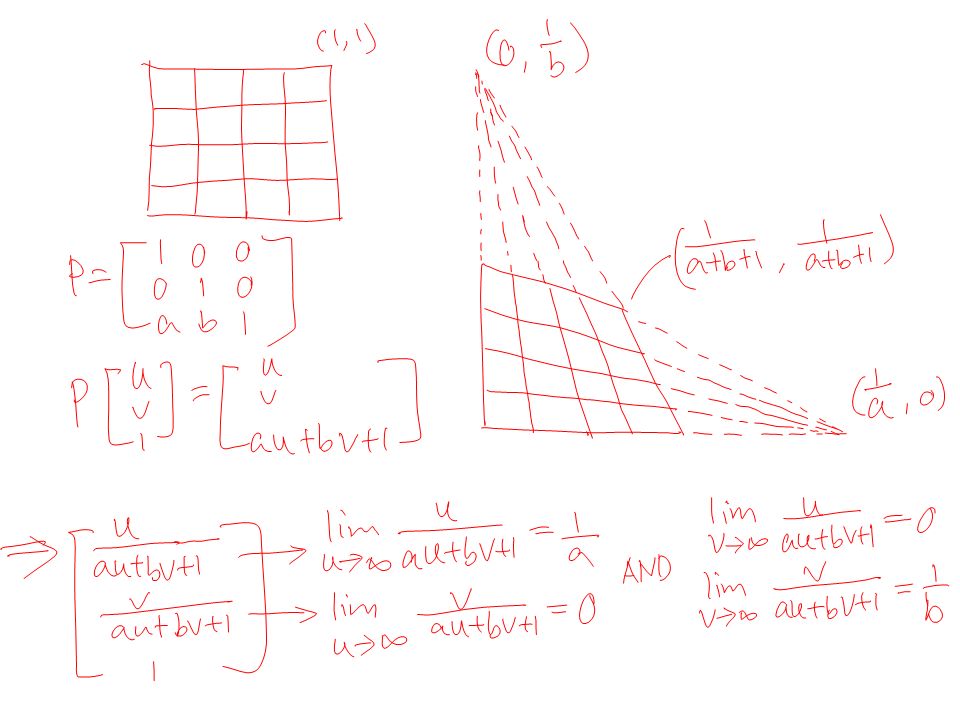 (1,1)
(0, 1/b)
(1/(a+b+1), 1/(a+b+1))
(1/a, 0)
P = [1 0 0
0 1 0
a b 1]
P [u v 1] = [u
v
au+bv+1]
⇒ [u/(au+bv+1)
v/(au+bv+1)
1]
→ lim u→∞ u/(au+bv+1) = 1/a
→ lim u→∞ v/(au+bv+1) = 0
AND
lim v→∞ u/(au+bv+1) = 0
lim v→∞ v/(au+bv+1) = 1/b